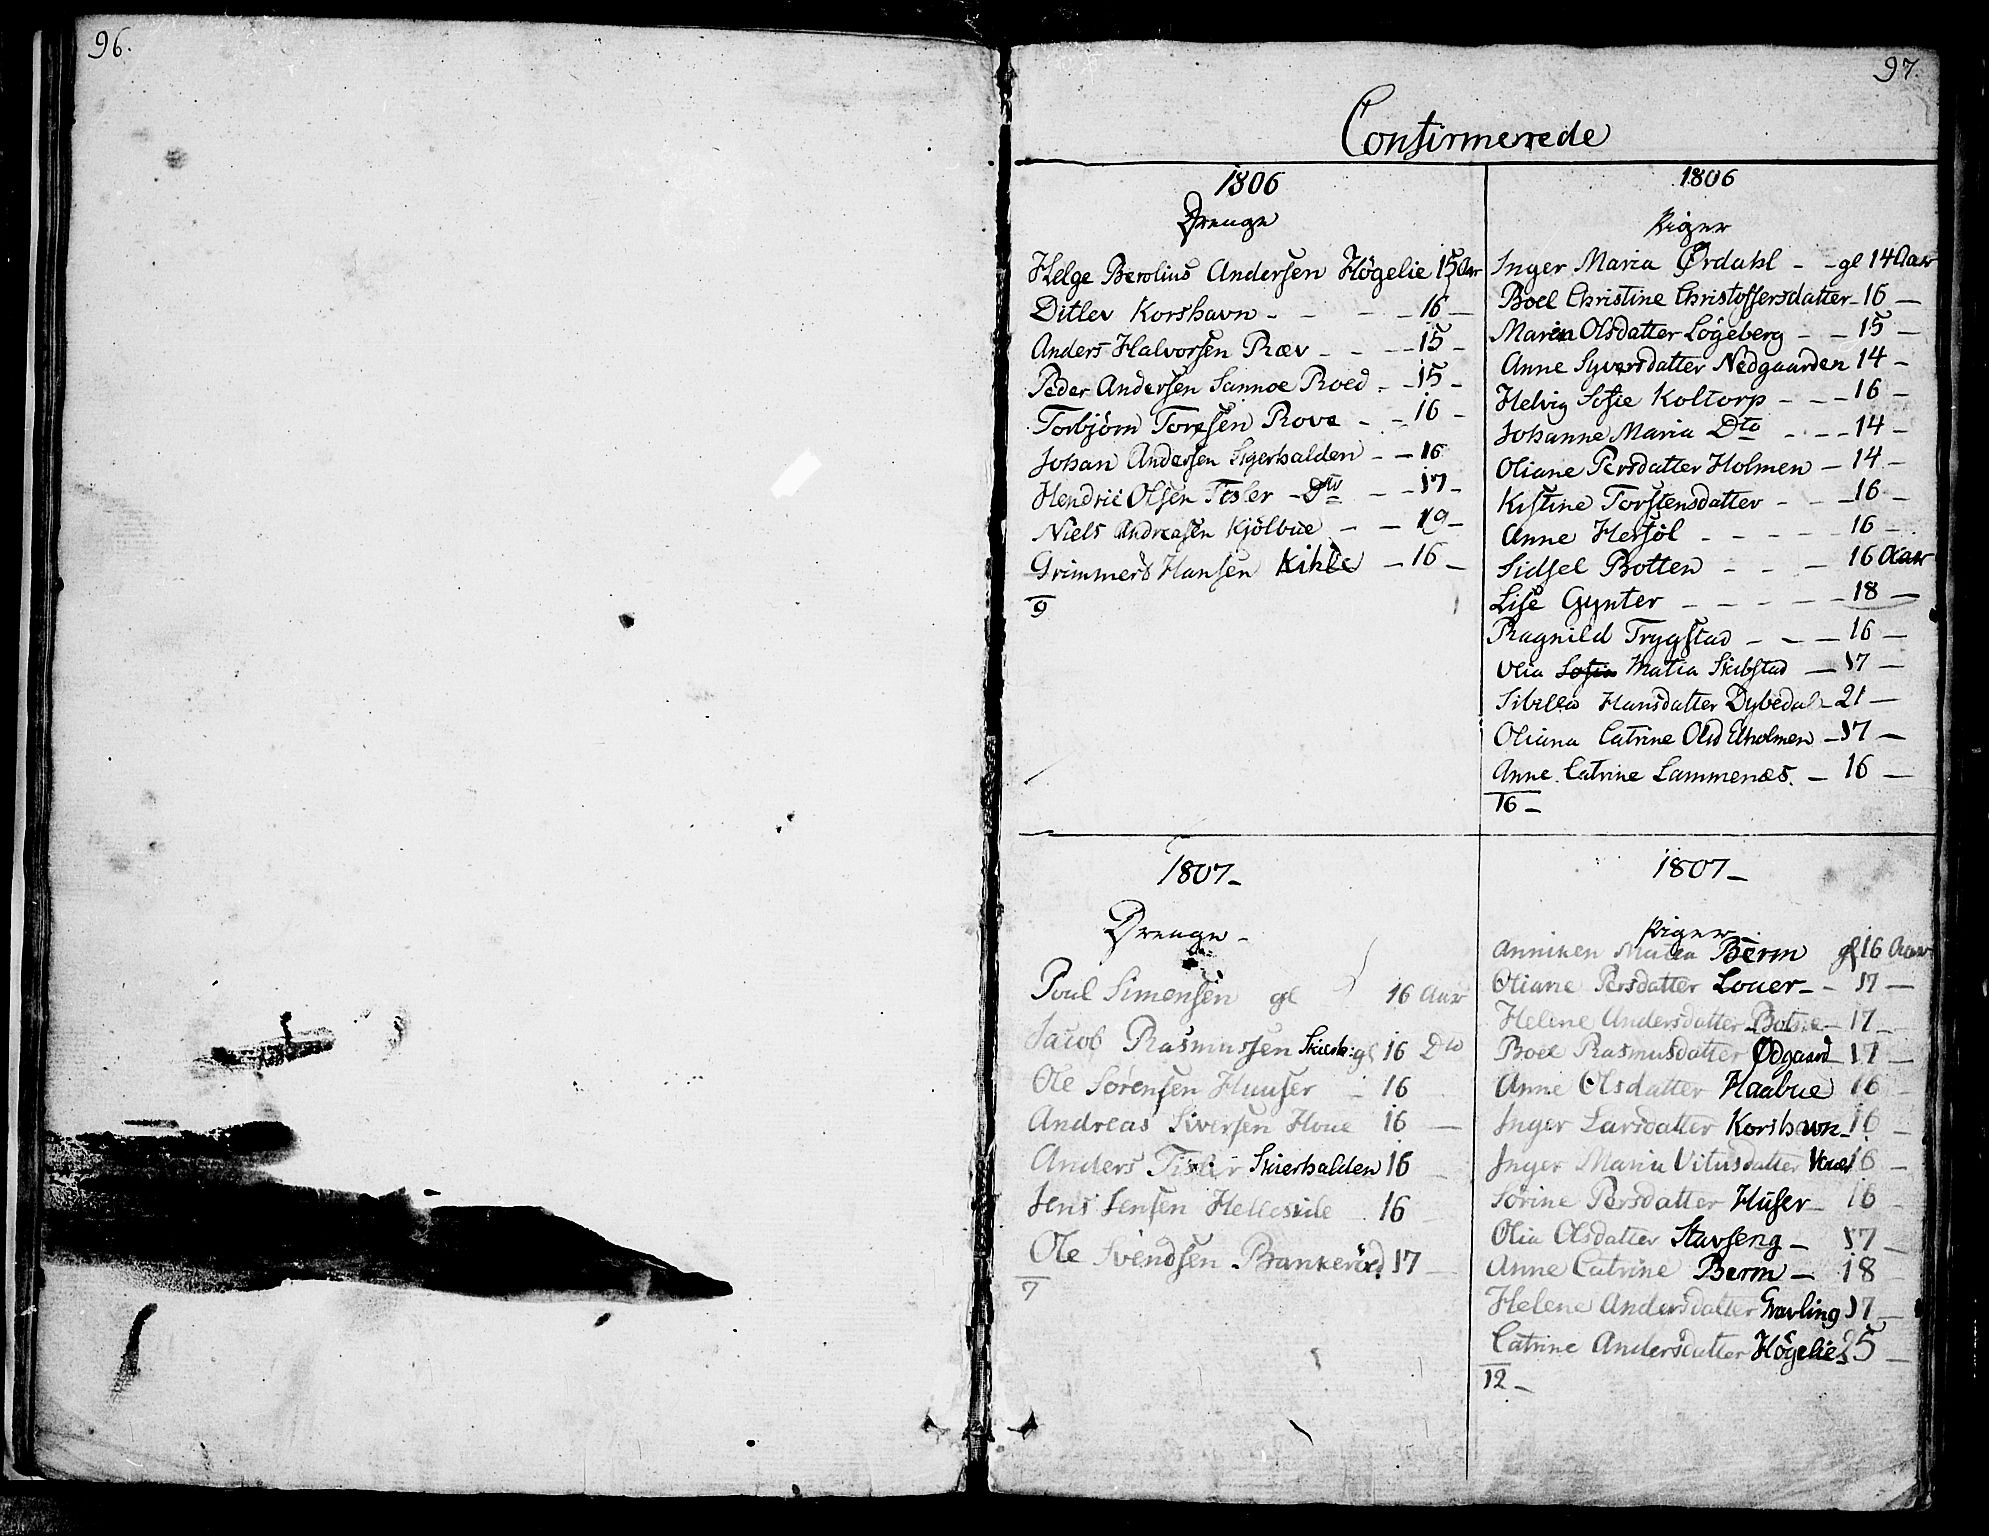 96.
97.
Confirmerede
1806
Drenge
Helge Berolius Andersen Högelie 15 Aar
Ditlev Korshavn - - - - 16 -
Anders Halvorsen Ræv - - - 15 -
Peder Andersen Sannoe Roed - - 15 -
Torbjörn Toresen Rove - - 16 -
Johan Andersen Skjerhalden - - 16
Hendric Olsen Tisler - Dto - - 17 -
Niels Andreasen Kjölbue - - 19 -
Grimmerd Hansen Kihle - 16 -
9
1806
Piger
Inger Maria Ørdahl - - gl 14 Aar
Boel Christine Christoffersdatter - 16 -
Maren Olsdatter Lögeberg - - 15 -
Anne Syversdatter Nedgaarden 14 -
Helvig Sofie Koltorp - - - 16 -
Johanne Maria Dto - - - 14 -
Oliane Persdatter Holmen - 14 -
Kistine Torstensdatter - - - 16 -
Anne Hersöl - - - - - 16 -
Sidsel Botten - - - 16 Aar
Lise Gynter - - - - - 18 -
Ragnild Trygstad - - - 16 -
Olia Sofia Maria Skibstad - 17 -
Sibilla Hansdatter Dybedal - 21 -
Oliana Catrine Olsd Elholmen - 17 -
Anne Catrine Lammenæs. - 16 -
16 -
1807 -
Drenge -
Poul Simensen gl 16 Aar
Jacob Rasmussen gl 16 Dto
Ole Sörensen Huuser - 16
Andreas Siversen Houe 16 -
Anders Tisler Skierhalden 16
Jens Jensen Helleside 16
Ole Svendsen Bankeröd 17 -
7
1807 -
Piger
Anniken Maria Berm gl 16 Aar
Oliane Persdatter Louer - - 17 -
Helene Andersdatter Botne - 17 -
Boel Rasmusdatter Ødgaard 17 -
Anne Olsdatter Haabue 16 -
Inger Larsdatter Korshavn - 16 -
Inger Maria Vitusdatter 16 -
Sörine Persdatter Huser - 16 -
Olia Olsdatter Stavseng - 17 -
Anne Catrine Berm - 18 -
Helene Andersdatter Gravling 17 -
Catrine Andersdatter Högelie 25 -
12 -